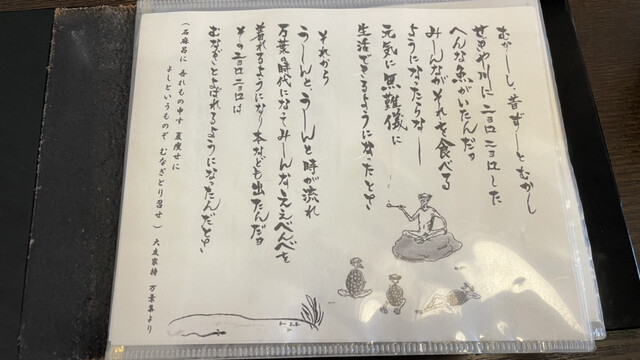 むかーしし、昔ずーっとむかし
せぎや川にニョロニョロした
へんな魚がいたんだョ
みーんながそれを食べる
ようになったらなー
元気に無難儀に
生活できるようになったとさ
それから
うーんと、うーんと時が流れ
万葉の時代になってみーんなええべべを
着れるようになり、本なども出たんだョ
そのニョロニョロは
むなぎとよばれるようになったんだとさ
(石麻呂に 吾れもの申す 夏痩せに
よしというものぞ むなぎとり召せ) 大友家持 万葉集より